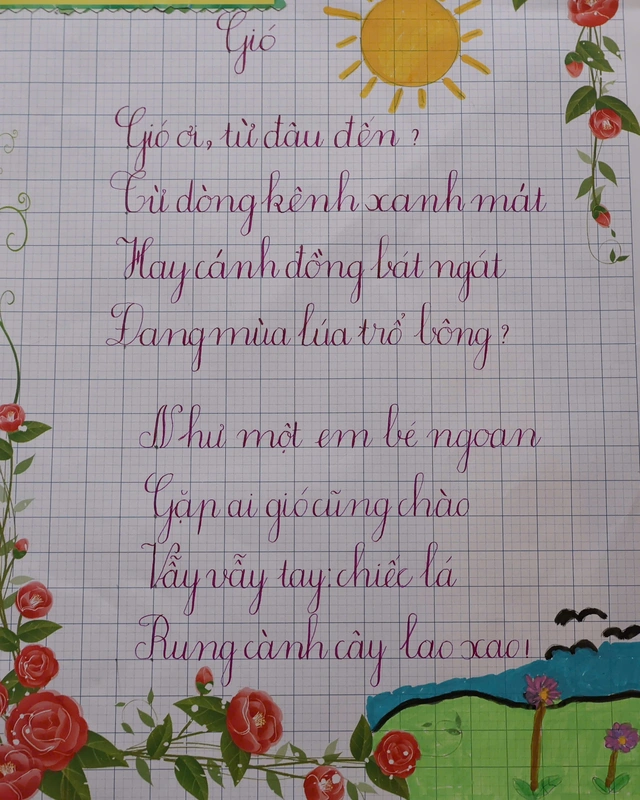 Gió
Gió ơi, từ đâu đến?
Từ dòng kênh xanh mát
Hay cánh đồng bát ngát
Đang mùa lúa trổ bông?
Như một em bé ngoan
Gặp ai gió cũng chào
Vẫy vẫy tay: chiếc lá
Rung cành cây lao xao!